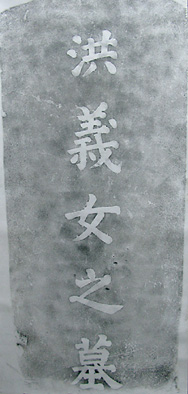 洪義女之墓